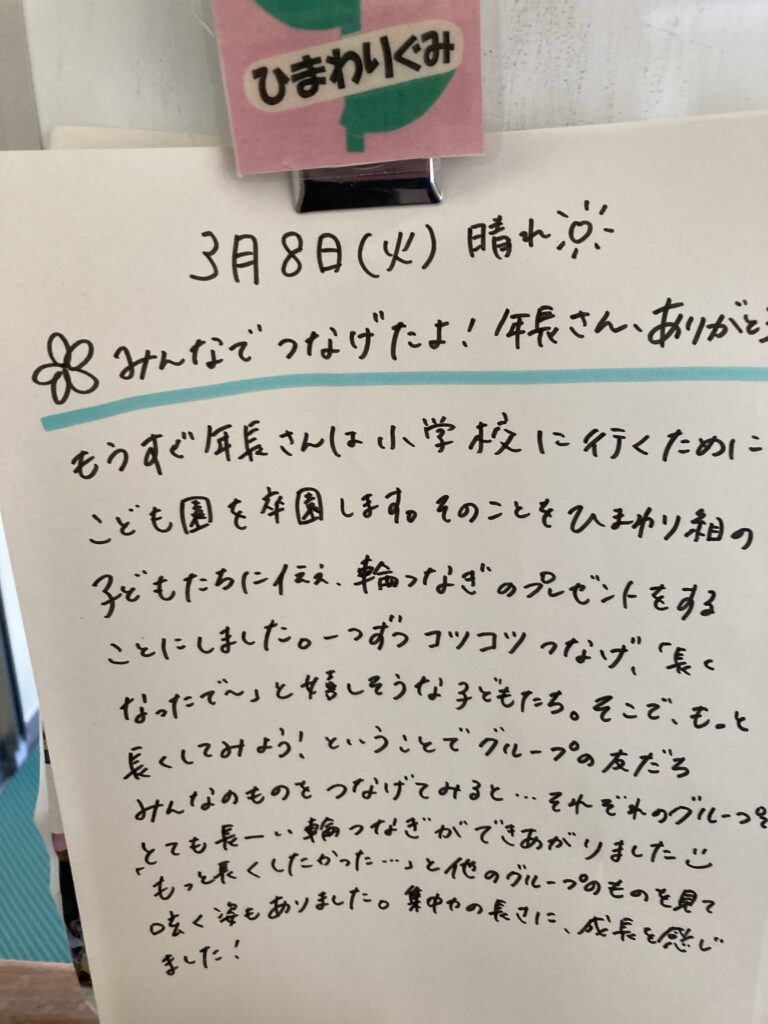 ひまわりぐみ
3月8日(火) 晴れ
みんなでつなげたよ!年長さん、ありがと
もうすぐ年長さんは小学校に行くために
こども園を卒園します。そのことをひまわり組の
子どもたちに伝え、輪つなぎのプレゼントをする
ことにしました。一つずつコツコツつなげ、「長く
なったで〜」と嬉しそうな子どもたち。そこで、もっと
長くしてみよう!ということでグループの友だち
みんなのものをつなげてみると…それぞれのグループで
とても長ーい輪つなぎができあがりました
「もっと長くしたかった…」と他のグループのものを見て
呟く姿もありました。集中力の長さに、成長を感じ
ました!